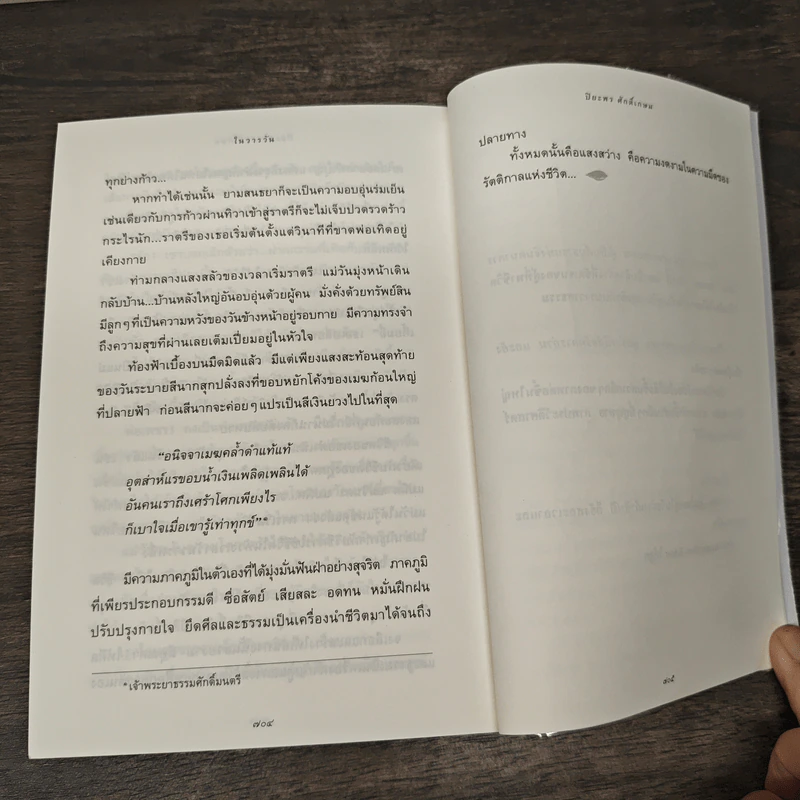 ในวารวัน
ทุกย่างก้าว...
หากทำได้เช่นนั้น ยามสนธยาก็จะเป็นความอบอุ่นร่มเย็น
เช่นเดียวกับการก้าวผ่านทิวาเข้าสู่ราตรีก็จะไม่เจ็บปวดรวดร้าว
กระไรนัก...ราตรีของเธอเริ่มต้นตั้งแต่วินาทีที่ขาดพ่อเทิดอยู่
เคียงกาย
ท่ามกลางแสงสลัวของเวลาเริ่มราตรี แม่วันมุ่งหน้าเดิน
กลับบ้าน...บ้านหลังใหญ่อันอบอุ่นด้วยผู้คน มั่งคั่งด้วยทรัพย์สิน
มีลูกๆที่เป็นความหวังของวันข้างหน้าอยู่รอบกาย มีความทรงจำ
ถึงความสุขที่ผ่านเลยเต็มเปี่ยมอยู่ในหัวใจ
ท้องฟ้าเบื้องบนมืดมิดแล้ว มีแต่เพียงแสงสะท้อนสุดท้าย
ของวันระบายสีนากสุกปลั่งลงที่ขอบหยักโค้งของเมฆก้อนใหญ่
ที่ปลายฟ้า ก่อนสีนากจะค่อยๆแปรเป็นสีเงินยวงไปในที่สุด
“อนิจจาเมฆคล้ำดำแท้แท้
อุตส่าห์แรขอบน้ำเงินเพลิดเพลินได้
อันคนเราถึงเศร้าโศกเพียงไร
ก็เบาใจเมื่อเขารู้เท่าทุกข์”*
มีความภาคภูมิในตัวเองที่ได้มุ่งมั่นฟันฝ่าอย่างสุจริต ภาคภูมิ
ที่เพียรประกอบกรรมดี ซื่อสัตย์ เสียสละ อดทน หมั่นฝึกฝน
ปรับปรุงกายใจ ยึดศีลและธรรมเป็นเครื่องนำชีวิตมาได้จนถึง
*เจ้าพระยาธรรมศักดิ์มนตรี
๗๐๔
ปิยะพร ศักดิ์เกษม
ปลายทาง
ทั้งหมดนั้นคือแสงสว่าง คือความงดงามในความมืดของ
รัตติกาลแห่งชีวิต...
๗๐๕